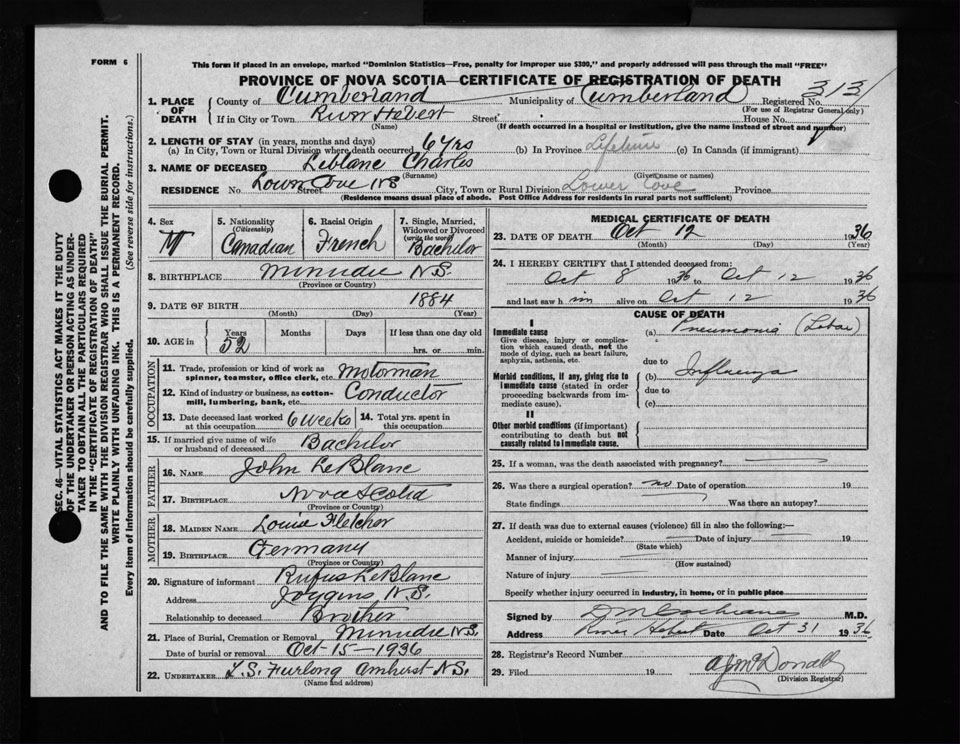 FORM 6
This form if placed in an envelope, marked "Dominion Statistics—Free, penalty for improper use $300," and properly addressed will pass through the mail "FREE"
PROVINCE OF NOVA SCOTIA—CERTIFICATE OF REGISTRATION OF DEATH
313
1. PLACE OF DEATH { County of Cumberland Municipality of Cumberland Registered No.
(For use of Registrar General only)
If in City or Town River Hebert Street House No.
(Name) (If death occurred in a hospital or institution, give the name instead of street and number)
2. LENGTH OF STAY (in years, months and days)
(a) In City, Town or Rural Division where death occurred 6 yrs (b) In Province Lifetime (c) In Canada (if immigrant)
3. NAME OF DECEASED Leblanc Charles
(Surname) (Given name or names)
RESIDENCE No. Lower Cove NS Street City, Town or Rural Division Lower Cove Province
(Residence means usual place of abode. Post Office Address for residents in rural parts not sufficient)
SEC. 46—VITAL STATISTICS ACT MAKES IT THE DUTY
OF THE UNDERTAKER OR PERSON ACTING AS UNDER-
TAKER TO OBTAIN ALL THE PARTICULARS REQUIRED
IN THE "CERTIFICATE OF REGISTRATION OF DEATH"
AND TO FILE THE SAME WITH THE DIVISION REGISTRAR WHO SHALL ISSUE THE BURIAL PERMIT.
WRITE PLAINLY WITH UNFADING INK. THIS IS A PERMANENT RECORD.
Every item of information should be carefully supplied. (See reverse side for instructions.)
4. Sex M
5. Nationality (Citizenship) Canadian
6. Racial Origin French
7. Single, Married, Widowed or Divorced (write the word) Bachelor
8. BIRTHPLACE Minudie N.S.
(Province or Country)
9. DATE OF BIRTH 1884
(Month) (Day) (Year)
10. AGE in Years 52 Months Days If less than one day old
hrs. or min.
OCCUPATION
11. Trade, profession or kind of work as spinner, teamster, office clerk, etc. Motorman
12. Kind of industry or business, as cotton-mill, lumbering, bank, etc. Conductor
13. Date deceased last worked at this occupation 6 weeks 14. Total yrs. spent in this occupation
15. If married give name of wife or husband of deceased Bachelor
FATHER
16. NAME John LeBlanc
17. BIRTHPLACE Nova Scotia
(Province or Country)
MOTHER
18. MAIDEN NAME Louise Fletcher
19. BIRTHPLACE Germany
(Province or Country)
20. Signature of informant Rufus LeBlanc
Address Joggins N.S.
Relationship to deceased Brother
21. Place of Burial, Cremation or Removal Minudie N.S.
Date of burial or removal Oct-15-1936
22. UNDERTAKER L.S. Furlong Amherst N.S.
(Name and address)
MEDICAL CERTIFICATE OF DEATH
23. DATE OF DEATH Oct 12 1936
(Month) (Day) (Year)
24. I HEREBY CERTIFY that I attended deceased from:
Oct 8 1936 to Oct 12 1936
and last saw him alive on Oct 12 1936
CAUSE OF DEATH
I
Immediate cause
Give disease, injury or complication which caused death, not the mode of dying, such as heart failure, asphyxia, asthenia, etc.
(a) Pneumonia (Lobar)
due to
Morbid conditions, if any, giving rise to immediate cause (stated in order proceeding backwards from immediate cause).
(b) Influenza
due to
(c)
II
Other morbid conditions (if important) contributing to death but not causally related to immediate cause.
25. If a woman, was the death associated with pregnancy?
26. Was there a surgical operation? no Date of operation 19
State findings Was there an autopsy?
27. If death was due to external causes (violence) fill in also the following:—
Accident, suicide or homicide? Date of injury 19
(State which)
Manner of injury
(How sustained)
Nature of injury
Specify whether injury occurred in industry, in home, or in public place
Signed by D M Cochrane M.D.
Address River Hebert Date Oct 31 1936
28. Registrar's Record Number
29. Filed 19 McDonald
(Division Registrar)